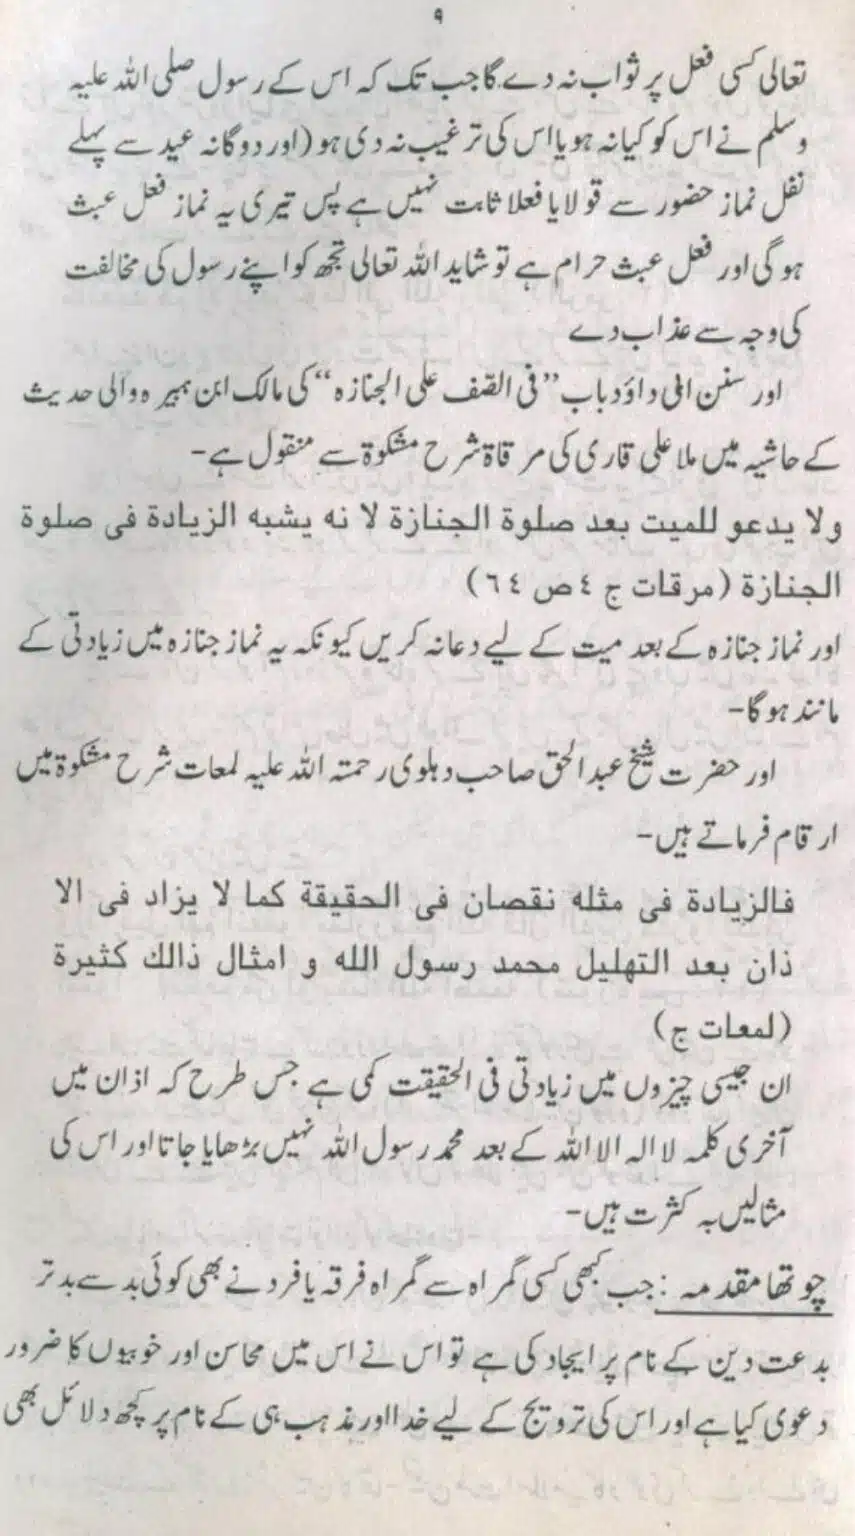 ۹
تعالی کسی فعل پر ثواب نہ دے گا جب تک کہ اس کے رسول صلی اللہ علیہ
وسلم نے اس کو کیا نہ ہو یا اس کی ترغیب نہ دی ہو (اور دوگانہ عید سے پہلے
نفل نماز حضور سے قولا یا فعلا ثابت نہیں ہے پس تیری یہ نماز فعل عبث
ہوگی اور فعل عبث حرام ہے تو شاید اللہ تعالی تجھ کو اپنے رسول کی مخالفت
کی وجہ سے عذاب دے
اور سنن ابی داؤد باب ”فی الصف علی الجنازہ“ کی مالک ابن ہبیرہ والی حدیث
کے حاشیہ میں ملا علی قاری کی مرقاۃ شرح مشکوۃ سے منقول ہے-
ولا يدعو للميت بعد صلوة الجنازة لا نه يشبه الزيادة فى صلوة
الجنازة (مرقات ج ٤ ص ٦٤)
اور نماز جنازہ کے بعد میت کے لیے دعا نہ کریں کیونکہ یہ نماز جنازہ میں زیادتی کے
مانند ہوگا-
اور حضرت شیخ عبدالحق صاحب دہلوی رحمتہ اللہ علیہ لمعات شرح مشکوۃ میں
ارقام فرماتے ہیں-
فالزيادة فى مثله نقصان فى الحقيقة كما لا يزاد فى الا
ذان بعد التهليل محمد رسول الله و امثال ذالك كثيرة
(لمعات ج)
ان جیسی چیزوں میں زیادتی فی الحقیقت کمی ہے جس طرح کہ اذان میں
آخری کلمہ لا الہ الا اللہ کے بعد محمد رسول اللہ نہیں بڑھایا جاتا اور اس کی
مثالیں بہ کثرت ہیں-
چوتھا مقدمہ: جب کبھی کسی گمراہ سے گمراہ فرقہ یا فرد نے بھی کوئی بد سے بدتر
بدعت دین کے نام پر ایجاد کی ہے تو اس نے اس میں محاسن اور خوبیوں کا ضرور
دعوی کیا ہے اور اس کی ترویج کے لیے خدا اور مذہب ہی کے نام پر کچھ دلائل بھی